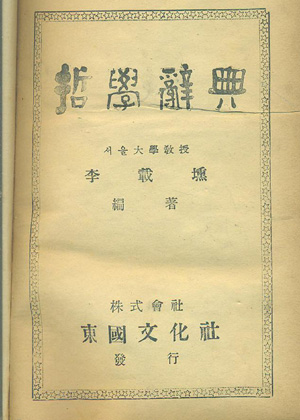 哲學辭典
서울大學敎授
李載壎
編著
株式會社
東國文化社
發行